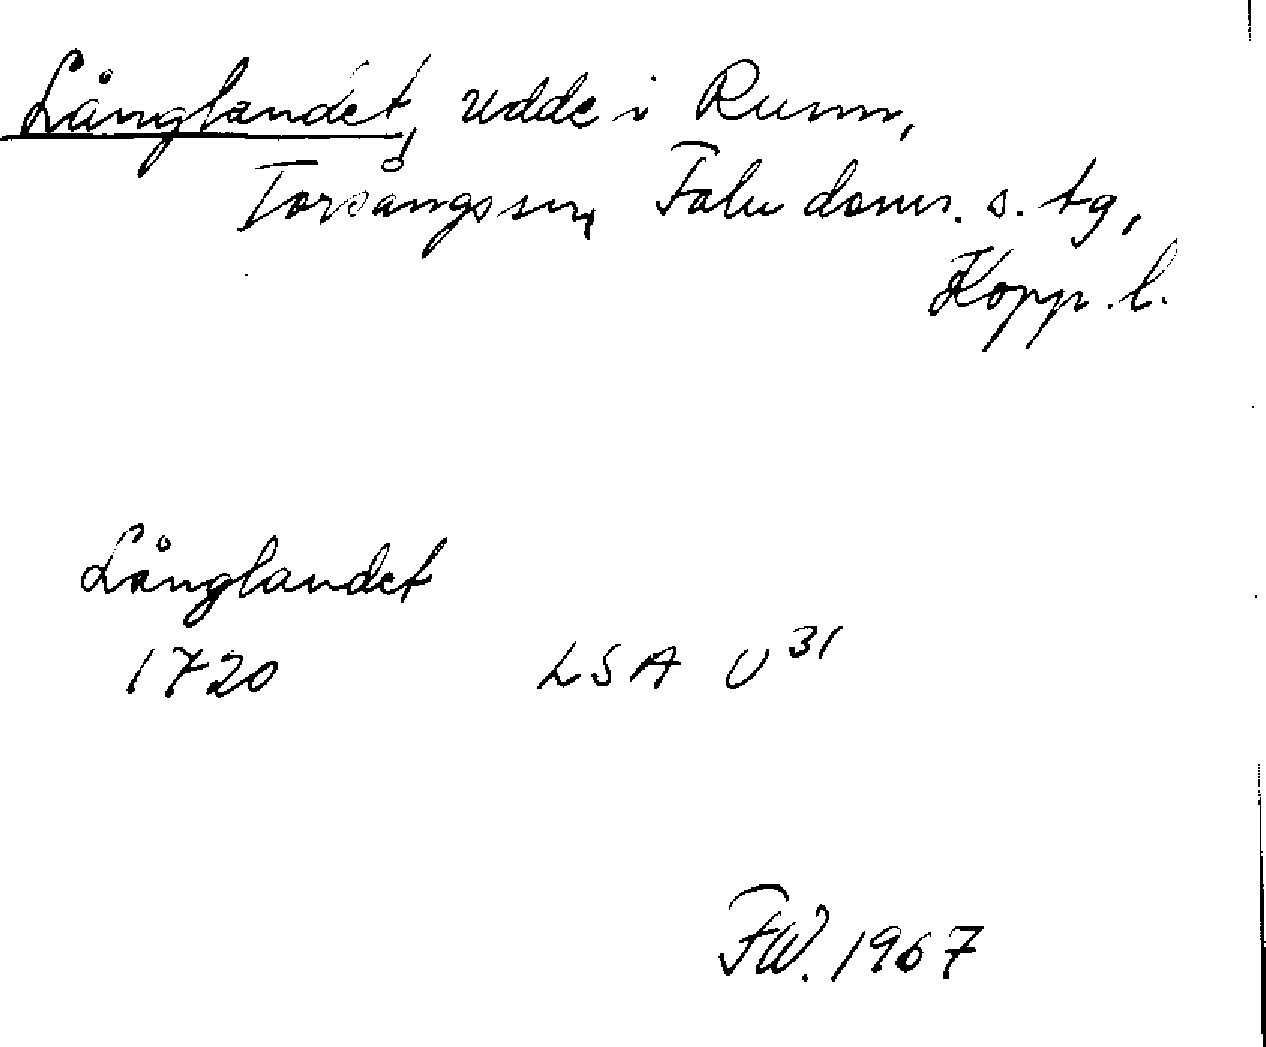 Långlandet, udde i Runn,
Torsångs sn, Falu doms. s. tg,
Kopp. l.
Långlandet
1720 LSA U 31
FW. 1967